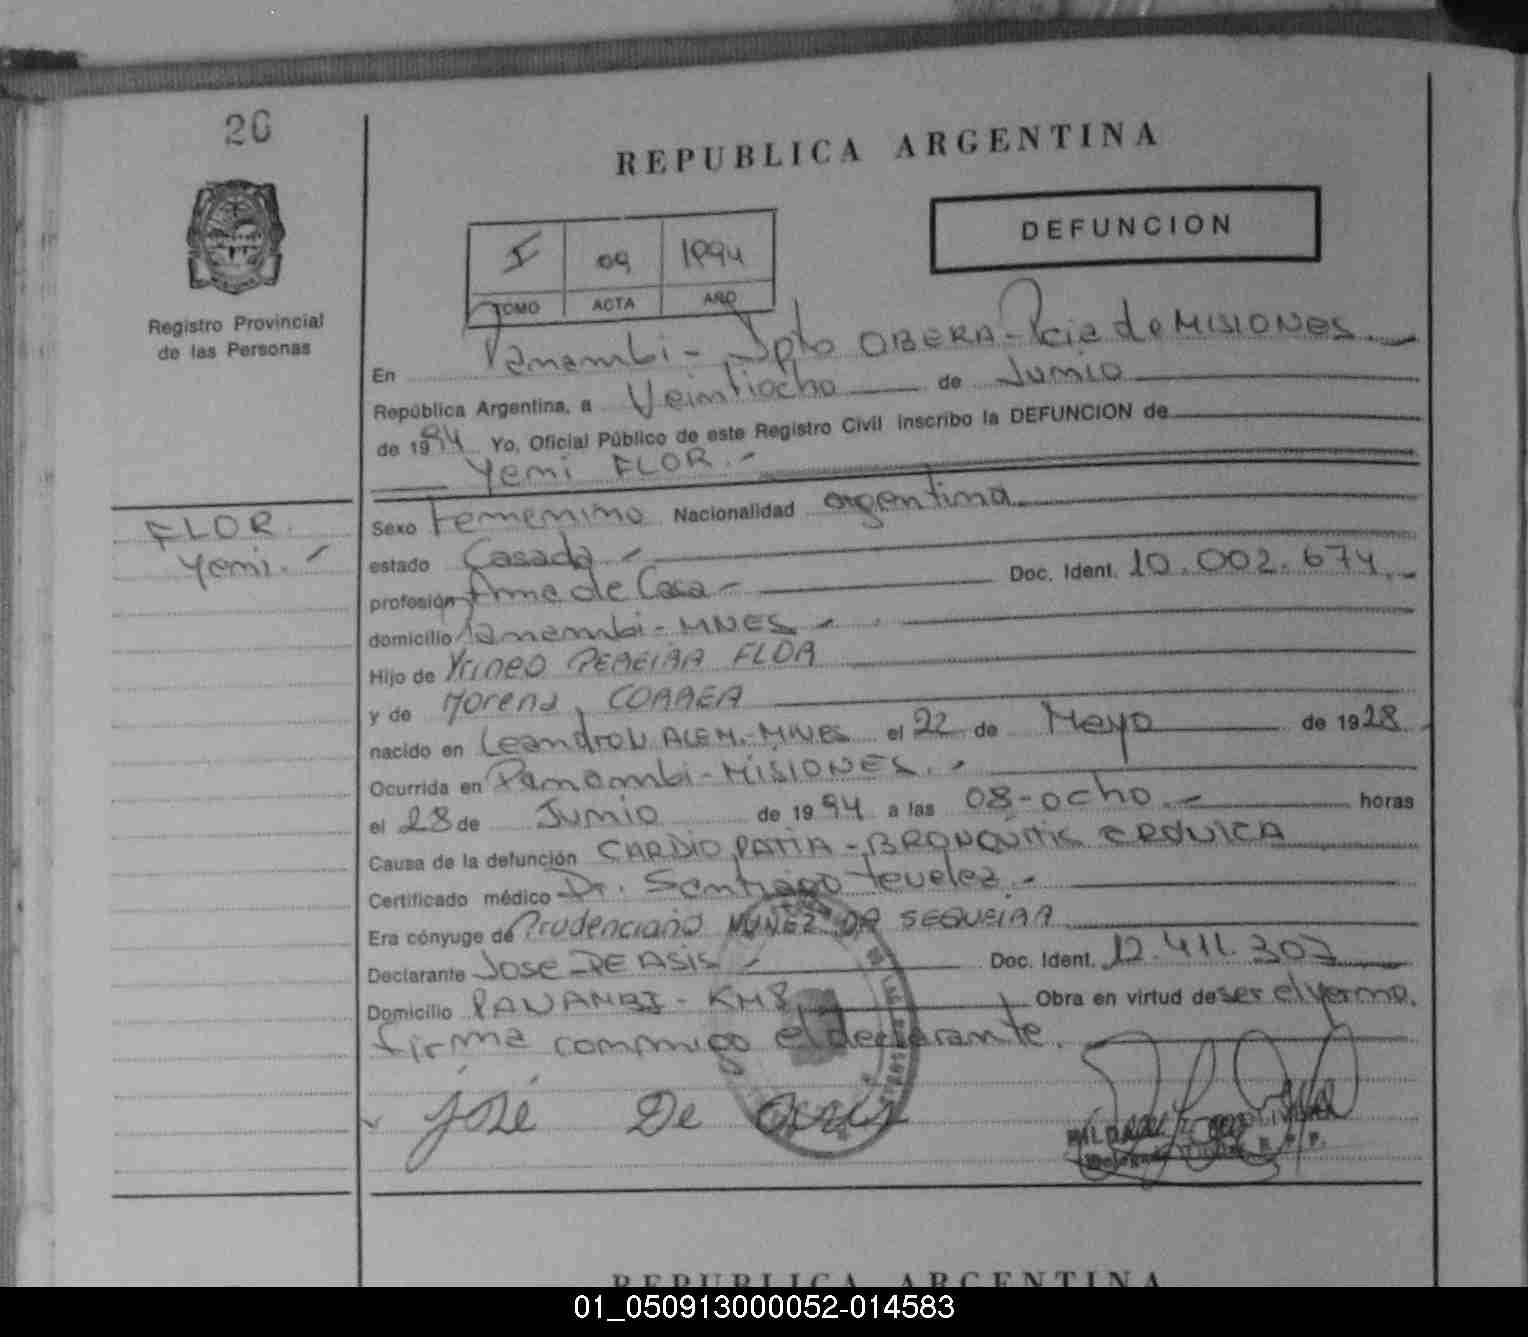 26
REPUBLICA ARGENTINA
DEFUNCION
I 09 1994
TOMO ACTA AÑO
Registro Provincial
de las Personas
En Panambi - Dpto OBERA - Pcia de MISIONES.-
República Argentina, a Veintiocho de Junio
de 1994 Yo, Oficial Público de este Registro Civil inscribo la DEFUNCION de
Yemi FLOR.-
FLOR.
Yemi.-
Sexo Femenino Nacionalidad argentina
estado Casada -
profesión Ama de Casa - Doc. Ident. 10.002.674.-
domicilio Panambi - MNES -
Hijo de Yrineo PEREIRA FLOR
y de Morena, CORREA
nacido en Leandro N. ALEM.-MNES el 22 de Mayo de 1928
Ocurrida en Panambi - MISIONES.-
el 28 de Junio de 1994 a las 08-ocho.- horas
Causa de la defunción CARDIOPATIA - BRONQUITIS CRONICA
Certificado médico Dr. Santiago Tevelez.-
Era cónyuge de Prudenciano NUÑEZ DA SEQUEIRA
Declarante JOSE DE ASIS - Doc. Ident. 12.411.307
Domicilio PANAMBI - KM8, Obra en virtud de ser el yerno.
firma conmigo el declarante.
José De Assis
REPUBLICA ARGENTINA
01_050913000052-014583